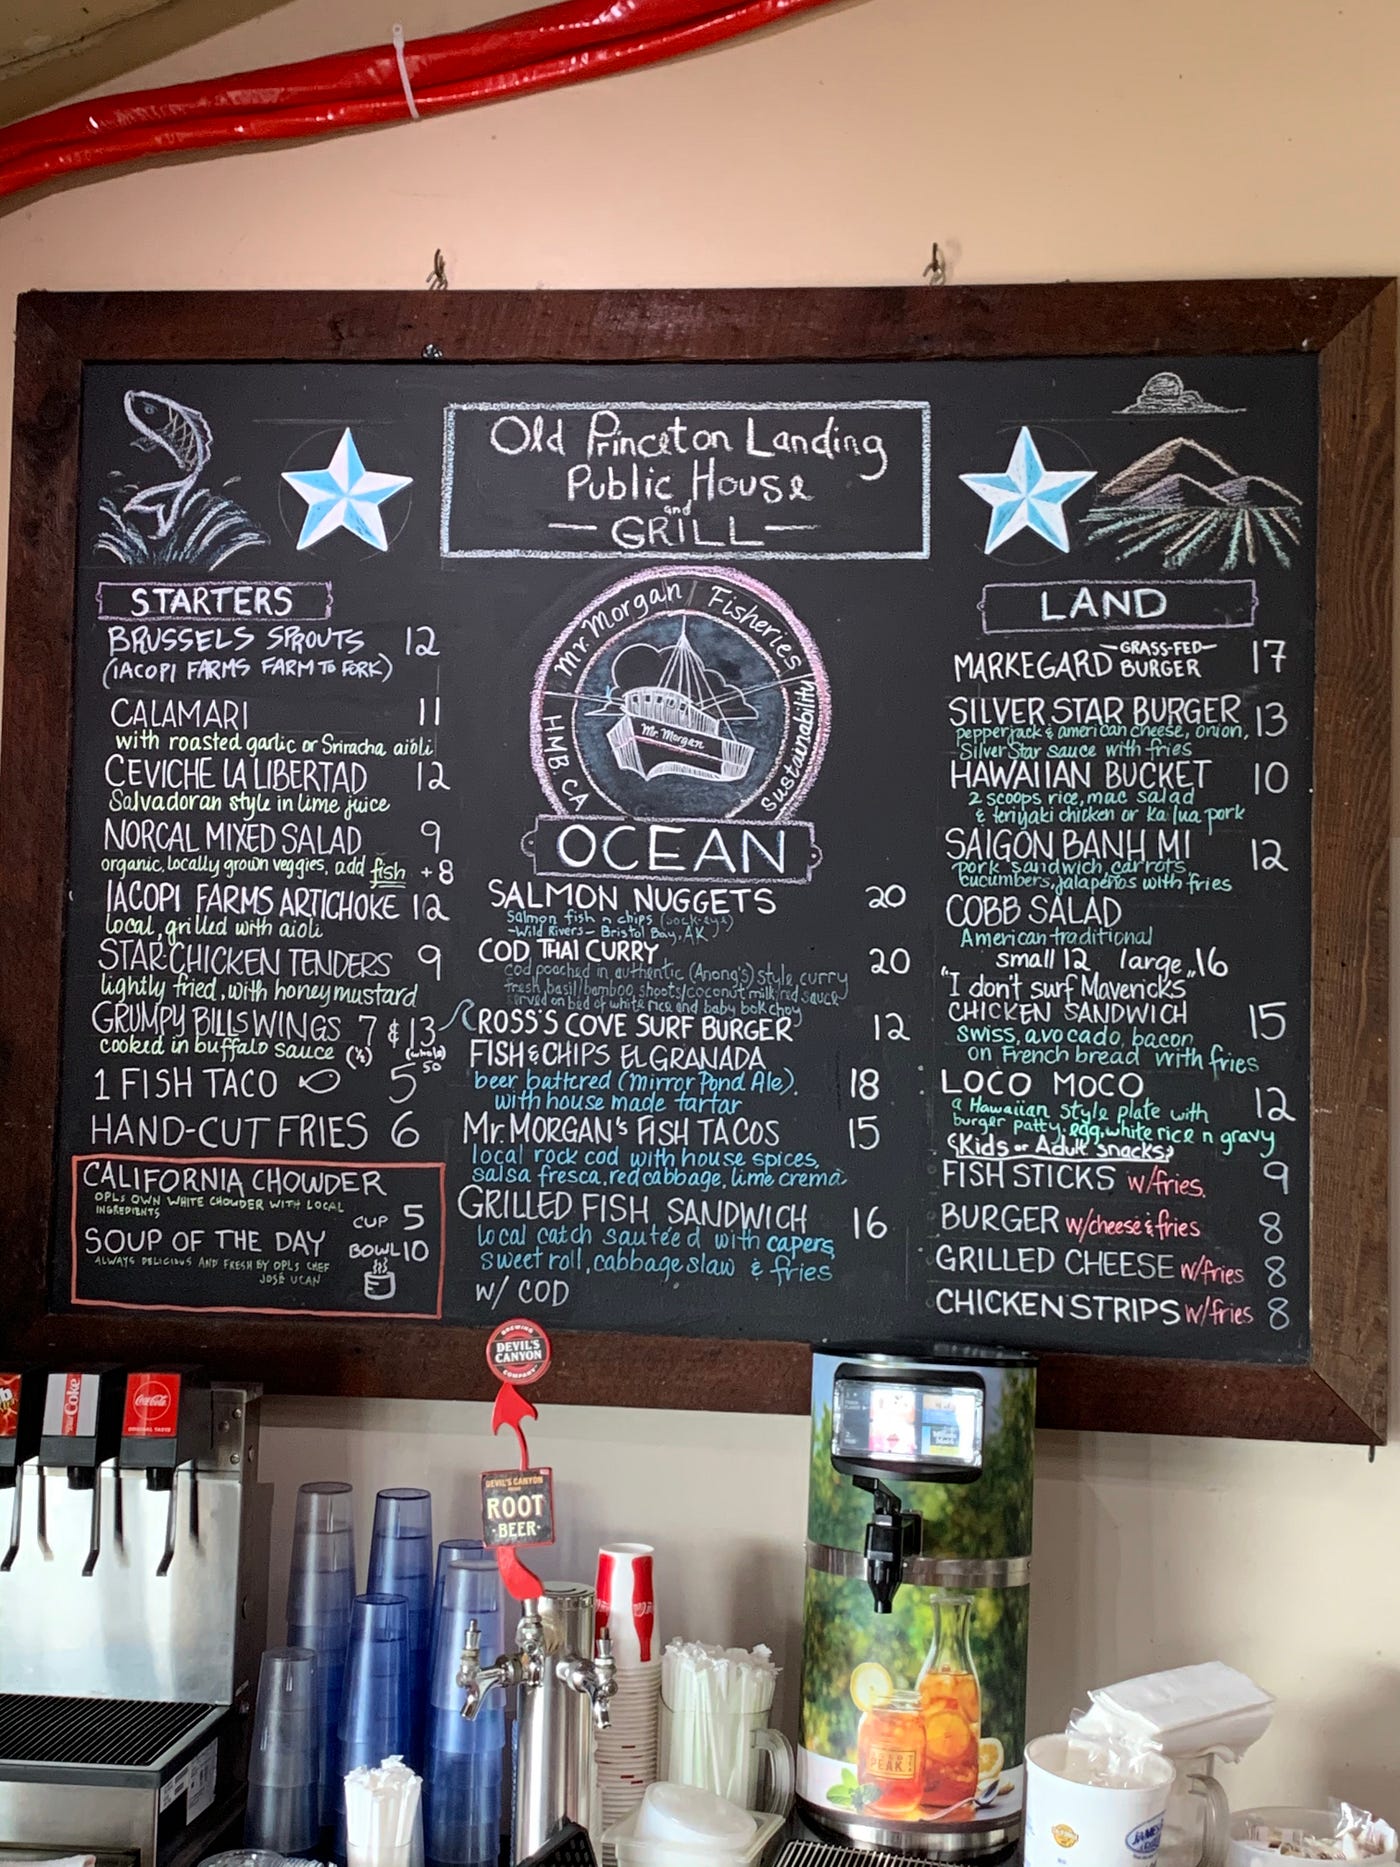 Old Princeton Landing
Public House
and
GRILL
STARTERS
BRUSSELS SPROUTS 12
(IACOPI FARMS FARM TO FORK)
CALAMARI 11
with roasted garlic or Sriracha aioli
CEVICHE LA LIBERTAD 12
Salvadoran style in lime juice
NORCAL MIXED SALAD 9
organic, locally grown veggies, add fish +8
IACOPI FARMS ARTICHOKE 12
local, grilled with aioli
STAR CHICKEN TENDERS 9
lightly fried, with honey mustard
GRUMPY BILLS WINGS 7 & 13
cooked in buffalo sauce (½) (whole)
50
1 FISH TACO 5
HAND-CUT FRIES 6
CALIFORNIA CHOWDER
OPLs OWN WHITE CHOWDER WITH LOCAL
INGREDIENTS
CUP 5
SOUP OF THE DAY BOWL 10
ALWAYS DELICIOUS AND FRESH BY OPLs CHEF
JOSÉ UCAN
Mr. Morgan Fisheries
Sustainability
H.M.B. CA
Mr. Morgan
OCEAN
SALMON NUGGETS 20
Salmon fish n chips (sock-eye)
~Wild Rivers~ Bristol Bay, AK
COD THAI CURRY 20
cod poached in authentic (Anong's) style curry
fresh basil/bamboo shoots/coconut milk/red sauce
served on bed of white rice and baby bok choy
ROSS'S COVE SURF BURGER 12
FISH & CHIPS EL GRANADA 18
beer battered (Mirror Pond Ale).
with house made tartar
Mr. MORGAN's FISH TACOS 15
local rock cod with house spices,
salsa fresca, red cabbage, lime crema
GRILLED FISH SANDWICH 16
local catch sautéed with capers,
sweet roll, cabbage slaw & fries
W/ COD
LAND
MARKEGARD GRASS-FED BURGER 17
SILVER STAR BURGER 13
pepperjack & american cheese, onion,
Silver Star sauce with fries
HAWAIIAN BUCKET 10
2 scoops rice, mac salad
& teriyaki chicken or Kalua pork
SAIGON BANH MI 12
pork sandwich, carrots,
cucumbers, jalapeños with fries
COBB SALAD
American traditional
small 12 large 16
"I don't surf Mavericks"
CHICKEN SANDWICH 15
swiss, avocado, bacon
on French bread with fries
LOCO MOCO 12
a Hawaiian style plate with
burger patty, egg, white rice n gravy
Kids or Adult snacks
FISH STICKS w/fries 9
BURGER w/cheese & fries 8
GRILLED CHEESE w/fries 8
CHICKEN STRIPS w/fries 8
BREWING
DEVIL'S
CANYON
COMPANY
DEVIL'S CANYON
ROOT
BEER
Coke
Coca-Cola
ORIGINAL TASTE
PEAK